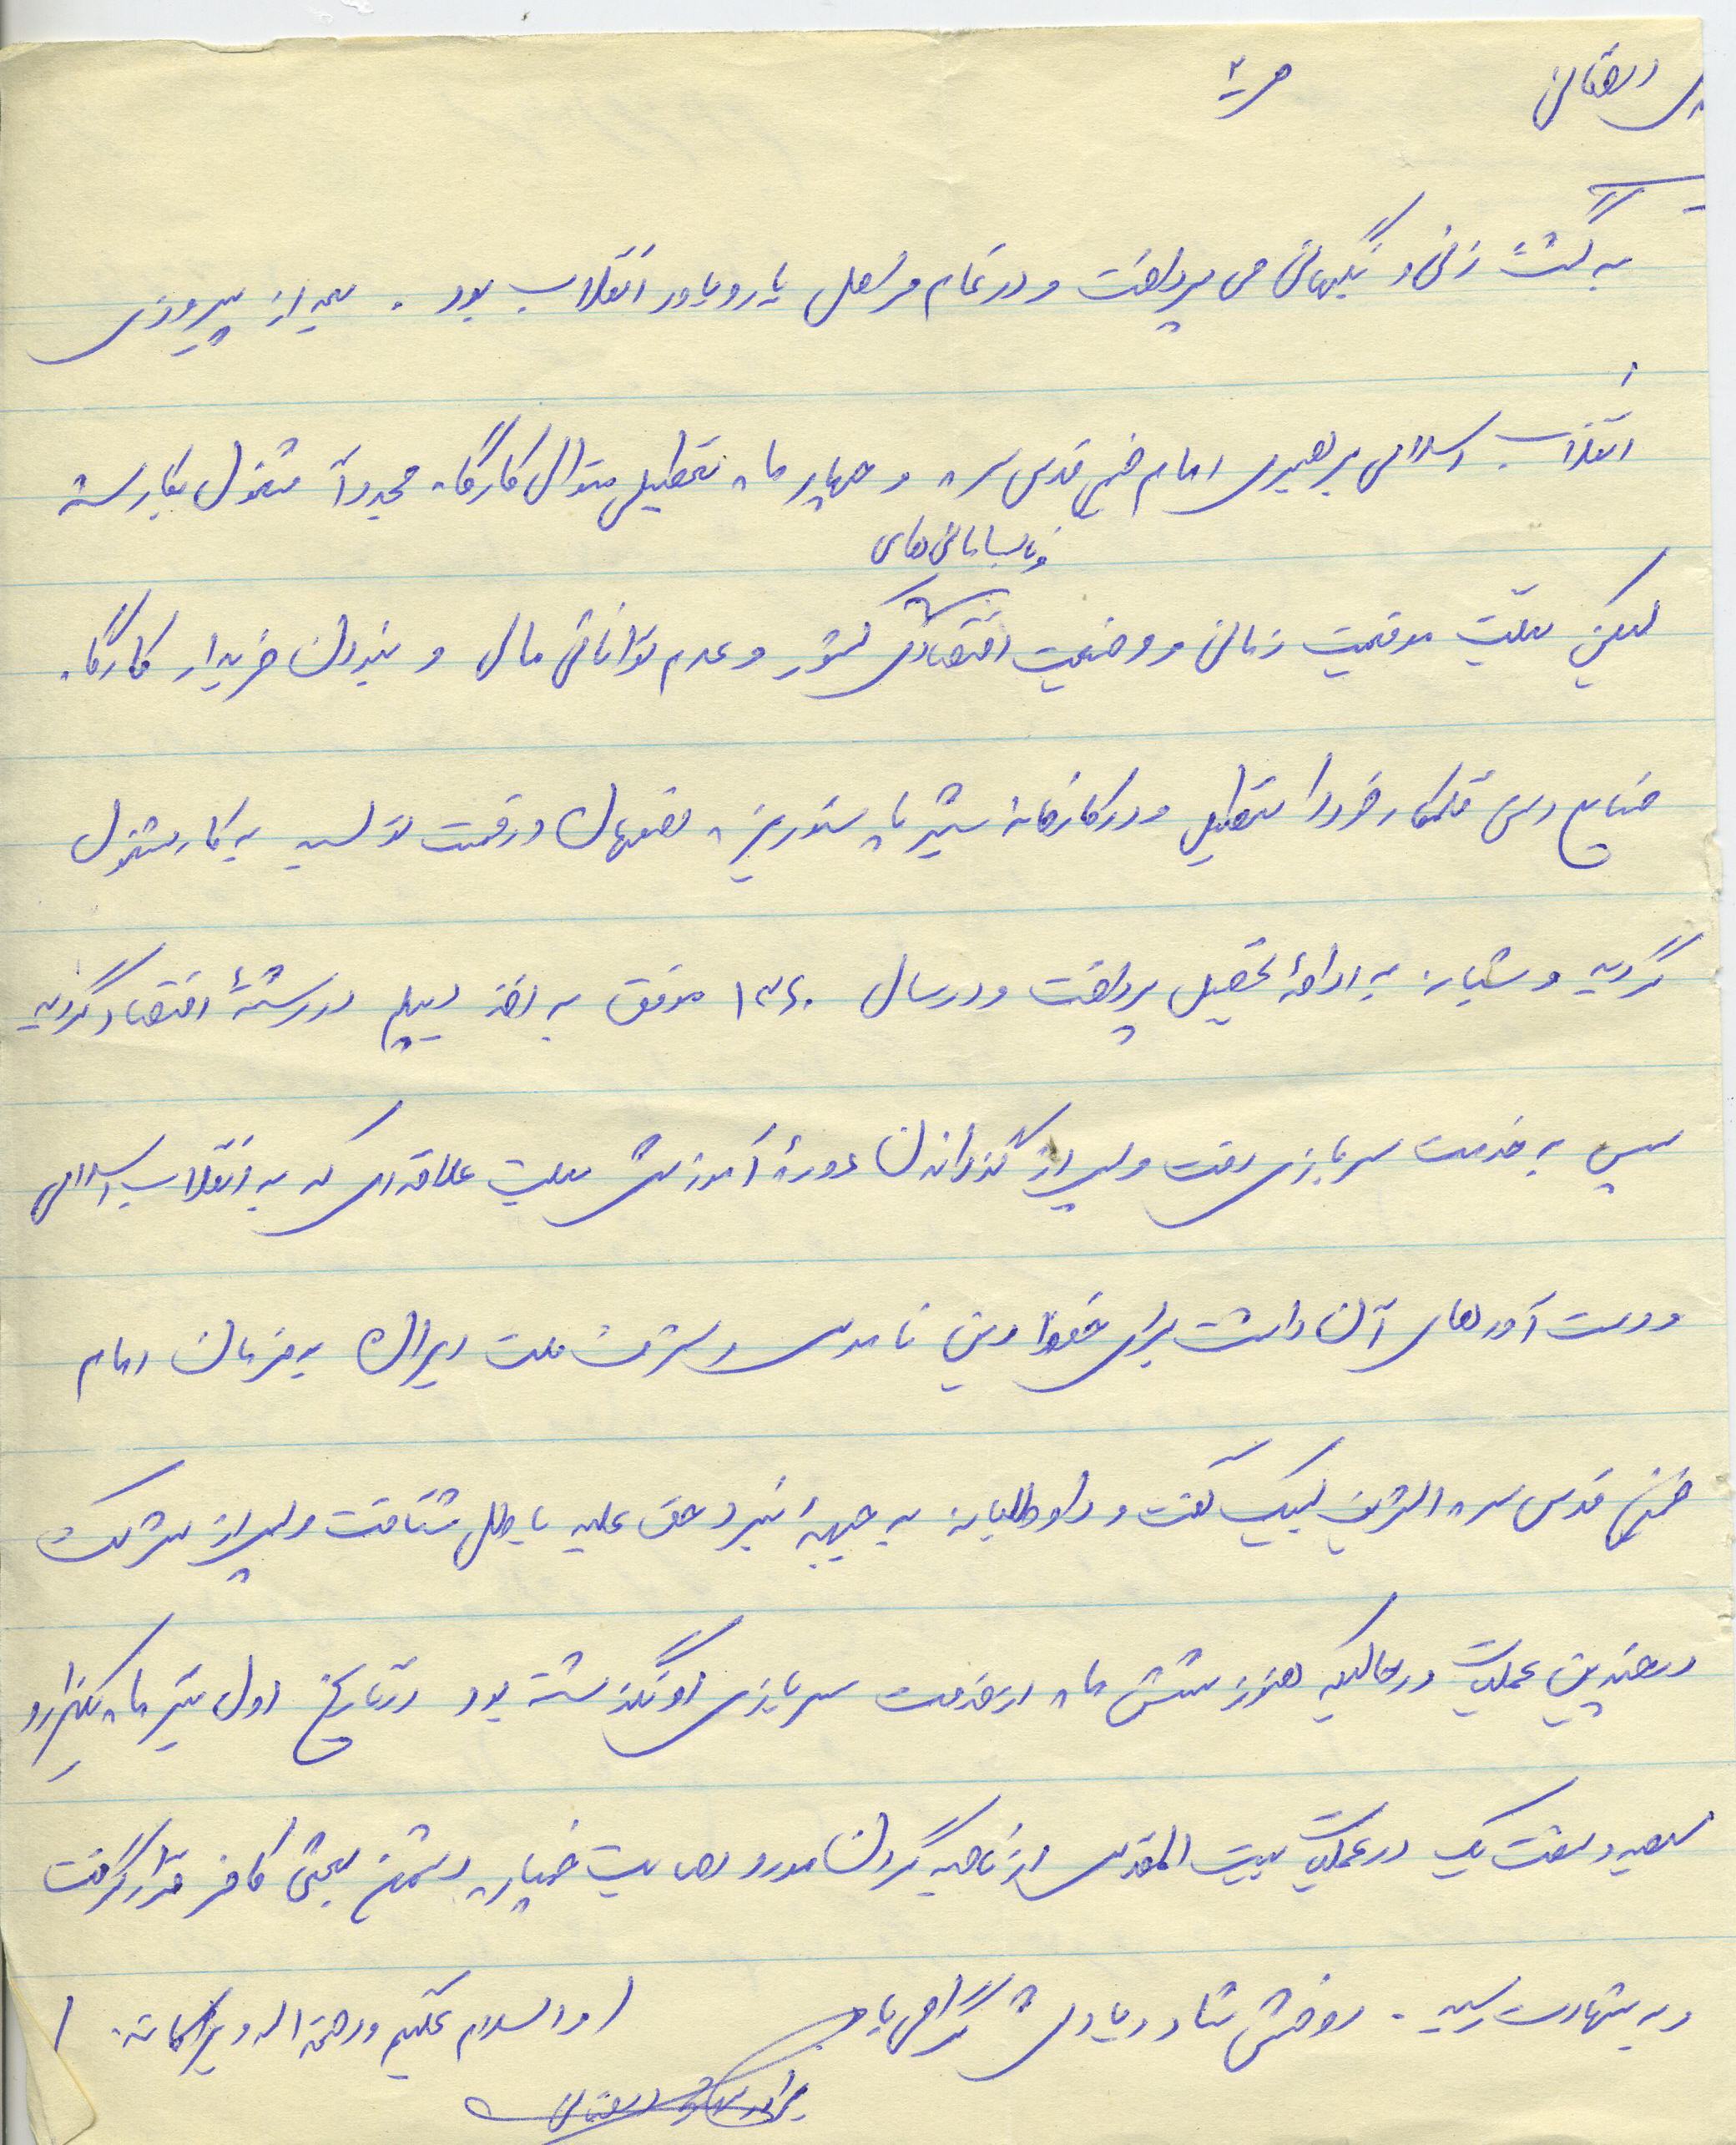 دهقانی ص۲
به گشت زنی و نگهبانی می پرداخت و در تمام مراحل یار و یاور انقلاب بود . بعد از پیروزی
انقلاب اسلامی برهبری امام خمینی قدس سره و چهار ماه تعطیلی متوالی کارگاه مجدداً مشغول بکار شد
و نابسامانی های
لیکن بعلت موقعیت زمانی و وضعیت اقتصادی کشور و عدم توانائی مالی و نبودن خریدار کارگاه
صنایع دستی قلمکار خود را تعطیل و در کارخانه شیر پاستوریزه اصفهان در قسمت تولید به کار مشغول
گردید و شبانه به ادامهٔ تحصیل پرداخت و در سال ۱۳۶۰ موفق به اخذ دیپلم در رشتهٔ اقتصاد گردید
سپس به خدمت سربازی رفت و پس از گذراندن دورهٔ آموزشی بعلت علاقه ای که به انقلاب اسلامی
و دست آوردهای آن داشت برای حفظ دین ناموس و شرف ملت ایران به فرمان امام
خمینی قدس سره الشریف لبیک گفت و داوطلبانه به جبههٔ نبرد حق علیه باطل شتافت و پس از شرکت
در چندین عملیات در حالیکه هنوز شش ماه از خدمت سربازی او نگذشته بود در تاریخ اول تیر ماه یکهزار و
سیصد و شصت یک در عملیات بیت المقدس از ناحیه گردن مورد اصابت خمپاره دشمن بعثی کافر قرار گرفت
و به شهادت رسید . روحش شاد و یادش گرامی باد ( والسلام علیکم و رحمة اله و برکاته )
برادر دهقانی